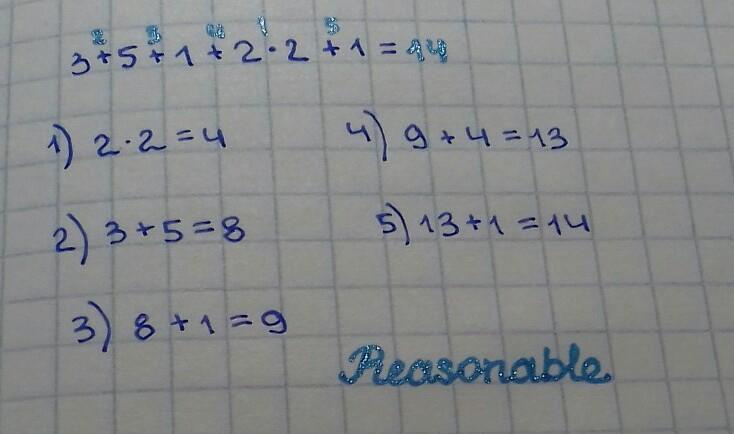 2 3 4 1 5
3+5+1+2·2+1=14
1) 2·2=4
2) 3+5=8
3) 8+1=9
4) 9+4=13
5) 13+1=14
Reasonable